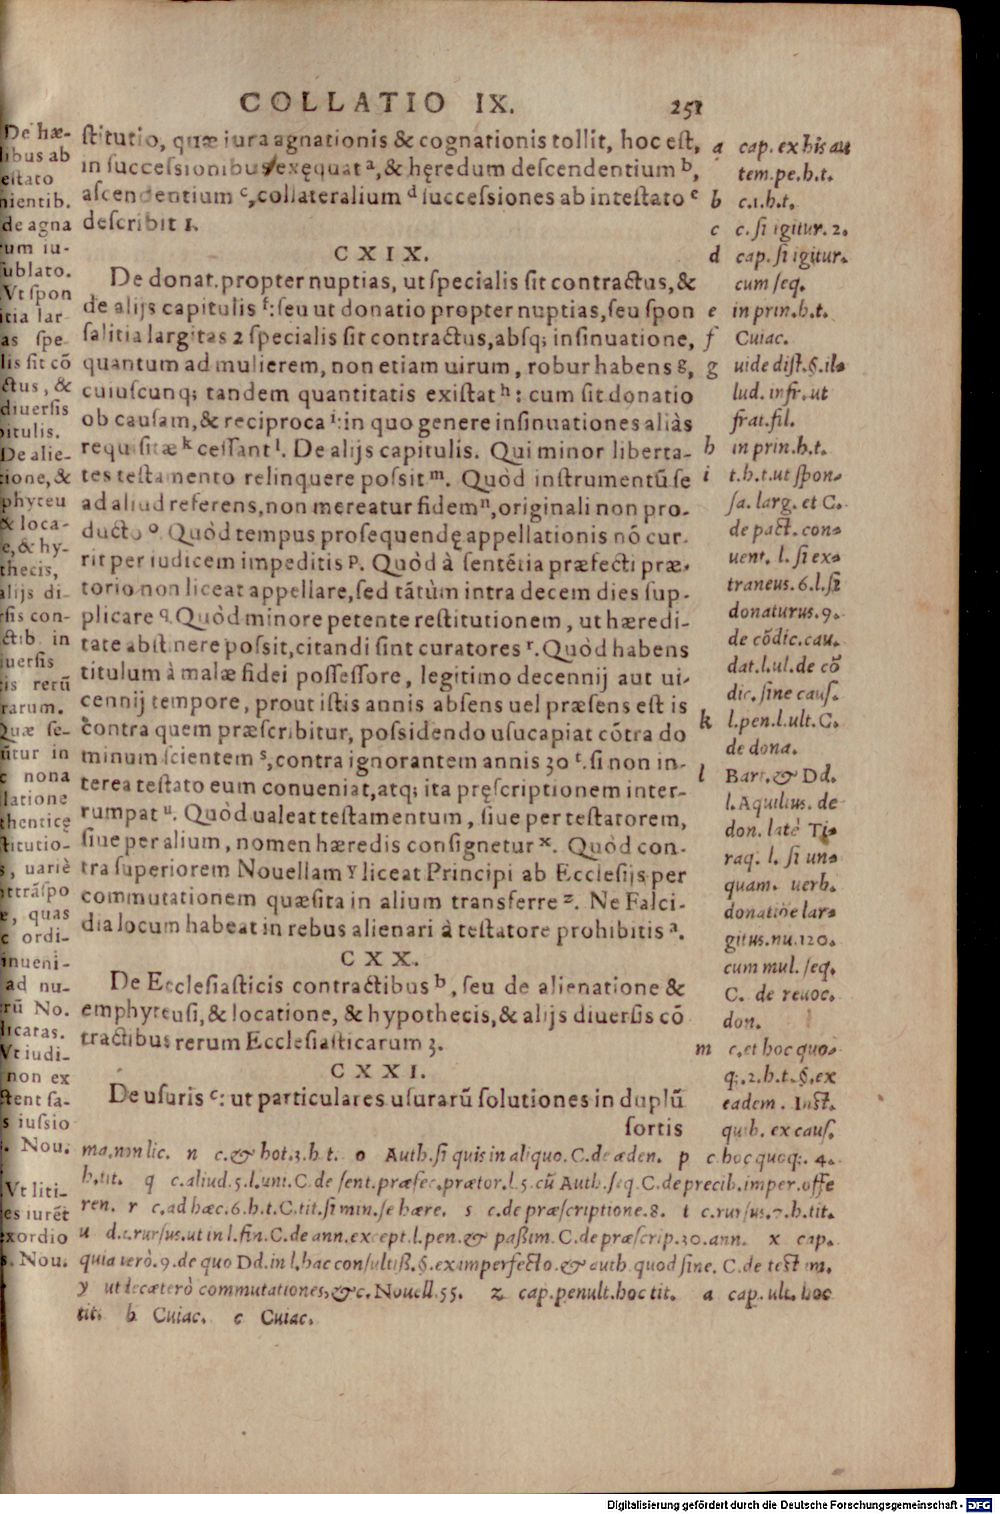 COLLATIO IX. 251
stitutio, quæ iura agnationis & cognationis tollit, hoc est,
in successionibus exęquat ᵃ, & hęredum descendentium ᵇ,
ascendentium ᶜ, collateralium ᵈ successiones ab intestato ᵉ
describit 1.
CXIX.
De donat. propter nuptias, ut specialis sit contractus, &
de alijs capitulis ᶠ: seu ut donatio propter nuptias, seu spon
salitia largitas 2 specialis sit contractus, absq; insinuatione,
quantum ad mulierem, non etiam uirum, robur habens g,
cuiuscunq; tandem quantitatis existat ʰ: cum sit donatio
ob causam, & reciproca ⁱ: in quo genere insinuationes aliàs
requisitæ ᵏ cessant ˡ. De alijs capitulis. Qui minor liberta-
tes testamento relinquere possit ᵐ. Quòd instrumentũ se
ad aliud referens, non mereatur fidem ⁿ, originali non pro-
ducto ᵒ. Quòd tempus prosequendę appellationis nõ cur-
rit per iudicem impeditis p. Quòd à sentẽtia præfecti præ-
torio non liceat appellare, sed tãtùm intra decem dies sup-
plicare q. Quòd minore petente restitutionem, ut hæredi-
tate abstinere possit, citandi sint curatores ʳ. Quòd habens
titulum à malæ fidei possessore, legitimo decennij aut ui-
cennij tempore, prout istis annis absens uel præsens est is
contra quem præscribitur, possidendo usucapiat cõtra do
minum scientem ˢ, contra ignorantem annis 30 ᵗ. si non in-
terea testato eum conueniat, atq; ita pręscriptionem inter-
rumpat ᵘ. Quòd ualeat testamentum, siue per testatorem,
siue per alium, nomen hæredis consignetur ˣ. Quòd con-
tra superiorem Nouellam y liceat Principi ab Ecclesijs per
commutationem quæsita in alium transferre ᶻ. Ne Falci-
dia locum habeat in rebus alienari à testatore prohibitis ᵃ.
CXX.
De Ecclesiasticis contractibus ᵇ, seu de alienatione &
emphyteusi, & locatione, & hypothecis, & alijs diuersis cõ
tractibus rerum Ecclesiasticarum 3.
CXXI.
De usuris ᶜ: ut particulares usurarũ solutiones in duplũ
sortis
a cap. ex his aut
tem. pe. h. t.
b c. 1. h. t.
c c. si igitur. 2.
d cap. si igitur.
cum seq.
e in prin. h. t.
f Cuiac.
g uide dist. §. il-
lud. infr. ut
frat. fil.
h in prin. h. t.
i t. h. t. ut spon-
sa. larg. et C.
de pact. con-
uent. l. si ex-
traneus. 6. l. si
donaturus. 9.
de cõdic. cau.
dat. l. ul. de cõ
dic. sine caus.
k l. pen. l. ult. C.
de dona.
l Bart. & Dd.
l. Aquilius. de
don. latè Ti-
raq. l. si un-
quam. uerb.
donatiõe lar-
gitus. nu. 120.
cum mul. seq.
C. de reuoc.
don.
m c. et hoc quo-
q;. 2. h. t. §. ex
eadem. Inst.
quib. ex caus.
ma. non lic. n c. & hot. 3. h. t. o Auth. si quis in aliquo. C. de æden. p c. hoc quoq;. 4.
h. tit. q c. aliud. 5. l. uni. C. de sent. præfec. prætor. l. 5. cũ Auth. seq. C. de precib. imper. offe
ren. r c. ad hæc. 6. h. t. C. tit. si min. se hære. s c. de præscriptione. 8. t c. rursus. 7. h. tit.
u d. c. rursus. ut in l. fin. C. de ann. except. l. pen. & passim. C. de præscrip. 30. ann. x cap.
quia uerò. 9. de quo Dd. in l. hac consultiß. §. ex imperfecto. & auth. quod sine. C. de testam.
y ut de cæterò commutationes, &c. Nouell. 55. z cap. penult. hoc tit. a cap. ult. hoc
tit. b Cuiac. c Cuiac.
De hæ-
libus ab
estato
nientib.
de agna
rum iu-
ublato.
Vt spon
itia lar
as spe-
lis sit cõ
ctus, &
diuersis
pitulis.
De alie-
tione, &
phyteu
& loca-
e, & hy-
thecis,
alijs di-
rsis con-
ctib. in
iuersis
is rerũ
rarum.
Quæ se-
ũtur in
c nona
latione
thenticę
stitutio-
s, uariè
ttrãspo
e, quas
c ordi-
inueni-
ad nu-
rũ No.
licatas.
Vt iudi-
non ex
stent sa-
s iussio
. Nou.
Vt liti-
es iurẽt
exordio
s. Nou.
Digitalisierung gefördert durch die Deutsche Forschungsgemeinschaft - DFG